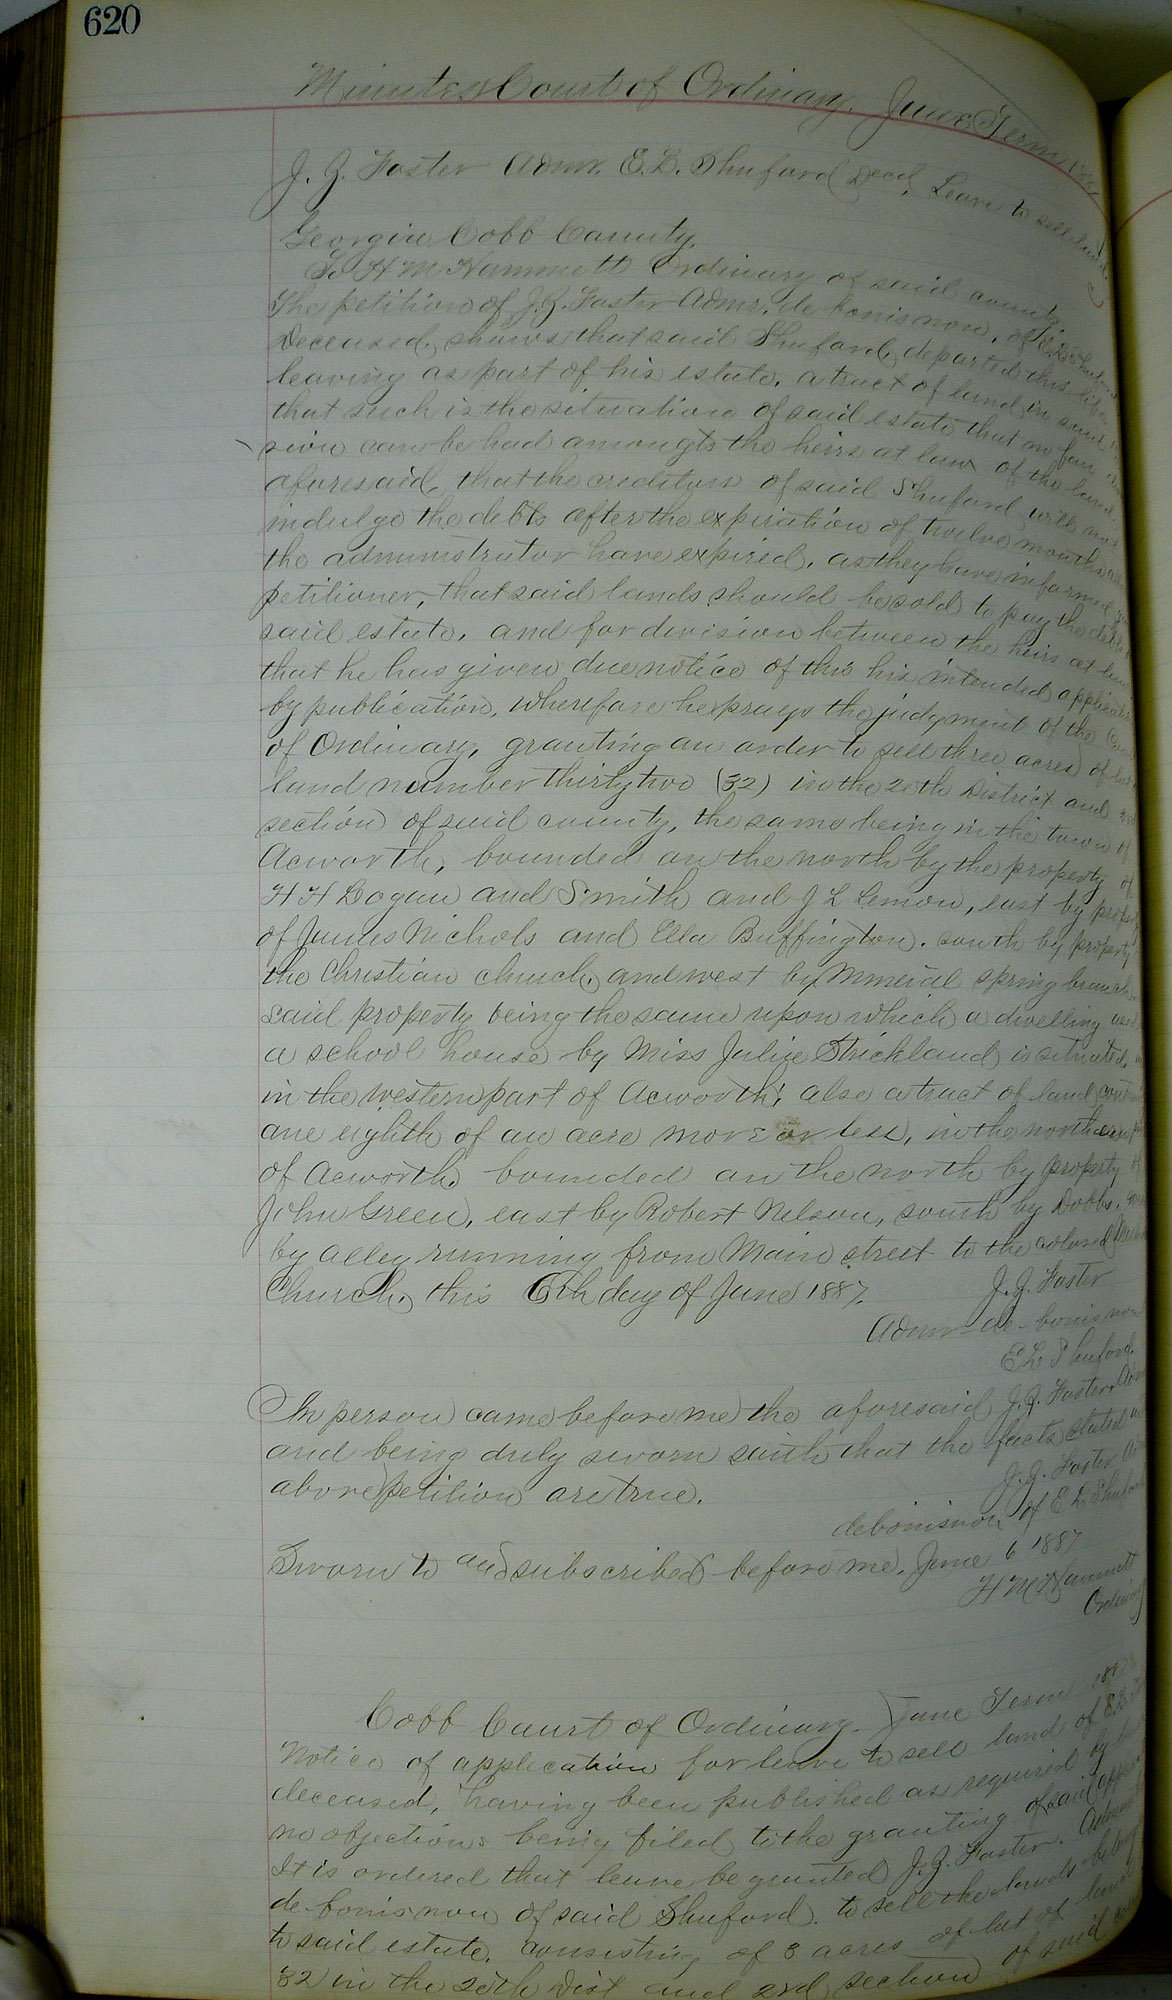 620
Minutes Court of Ordinary. June Term 188
J. Z. Foster Admr. E. L. Shuford Decd. Leave to sell land.
Georgia Cobb County.
To H M Hammett Ordinary of said county.
The petition of J. Z. Foster Admr. de bonis non, of E. L. Shuford
Deceased, shows that said Shuford, departed this life
leaving as part of his estate, a tract of land in said
that such is the situation of said estate that no fair
sion can be had amongts the heirs at law of the land
aforesaid, that the creditors of said Shuford will not
indulge the debts after the expiration of twelve months
the administrator have expired, as they have informed
petitioner, that said lands should be sold to pay the debts
said estate, and for division between the heirs at law
that he has given due notice of this his intended application
by publication, wherefore he prays the judgment of the
of Ordinary, granting an order to sell three acres of
land number thirty two (32) in the 20th District and
section of said county, the same being in the town of
Acworth, bounded on the north by the property of
H H Logan and Smith and J L Lemon, east by property
of James Nichols and Ella Buffington. south by property
the Christian church, and west by Mineral spring branch
said property being the same upon which a dwelling used
a school house by Miss Julie Strickland is situated,
in the western part of Acworth; also a tract of land
one eighth of an acre more or less, in the northern
of Acworth, bounded on the north by property of
John Green, east by Robert Nelson, south by Dobbs,
by alley running from Main street to the colored
Church, this 6th day of June 1887.
J. Z. Foster
Admr de-bonis non
E L Shuford.
In person came before me the aforesaid J. Z. Foster,
and being duly sworn saith that the facts stated
above petition are true.
J. Z. Foster
de bonis non of E L Shuford
Sworn to and subscribed before me, June 6 1887
H M Hammett
Ordinary
Cobb Court of Ordinary. June Term 188
Notice of application for leave to sell land of E. L.
deceased, having been published as required by
no objections being filed to the granting of said
It is ordered that leave be granted J. Z. Foster.
de-bonis non of said Shuford. to sell the lands
to said estate, consisting of 3 acres of lot of land
32 in the 20th Dist and 2nd section of said